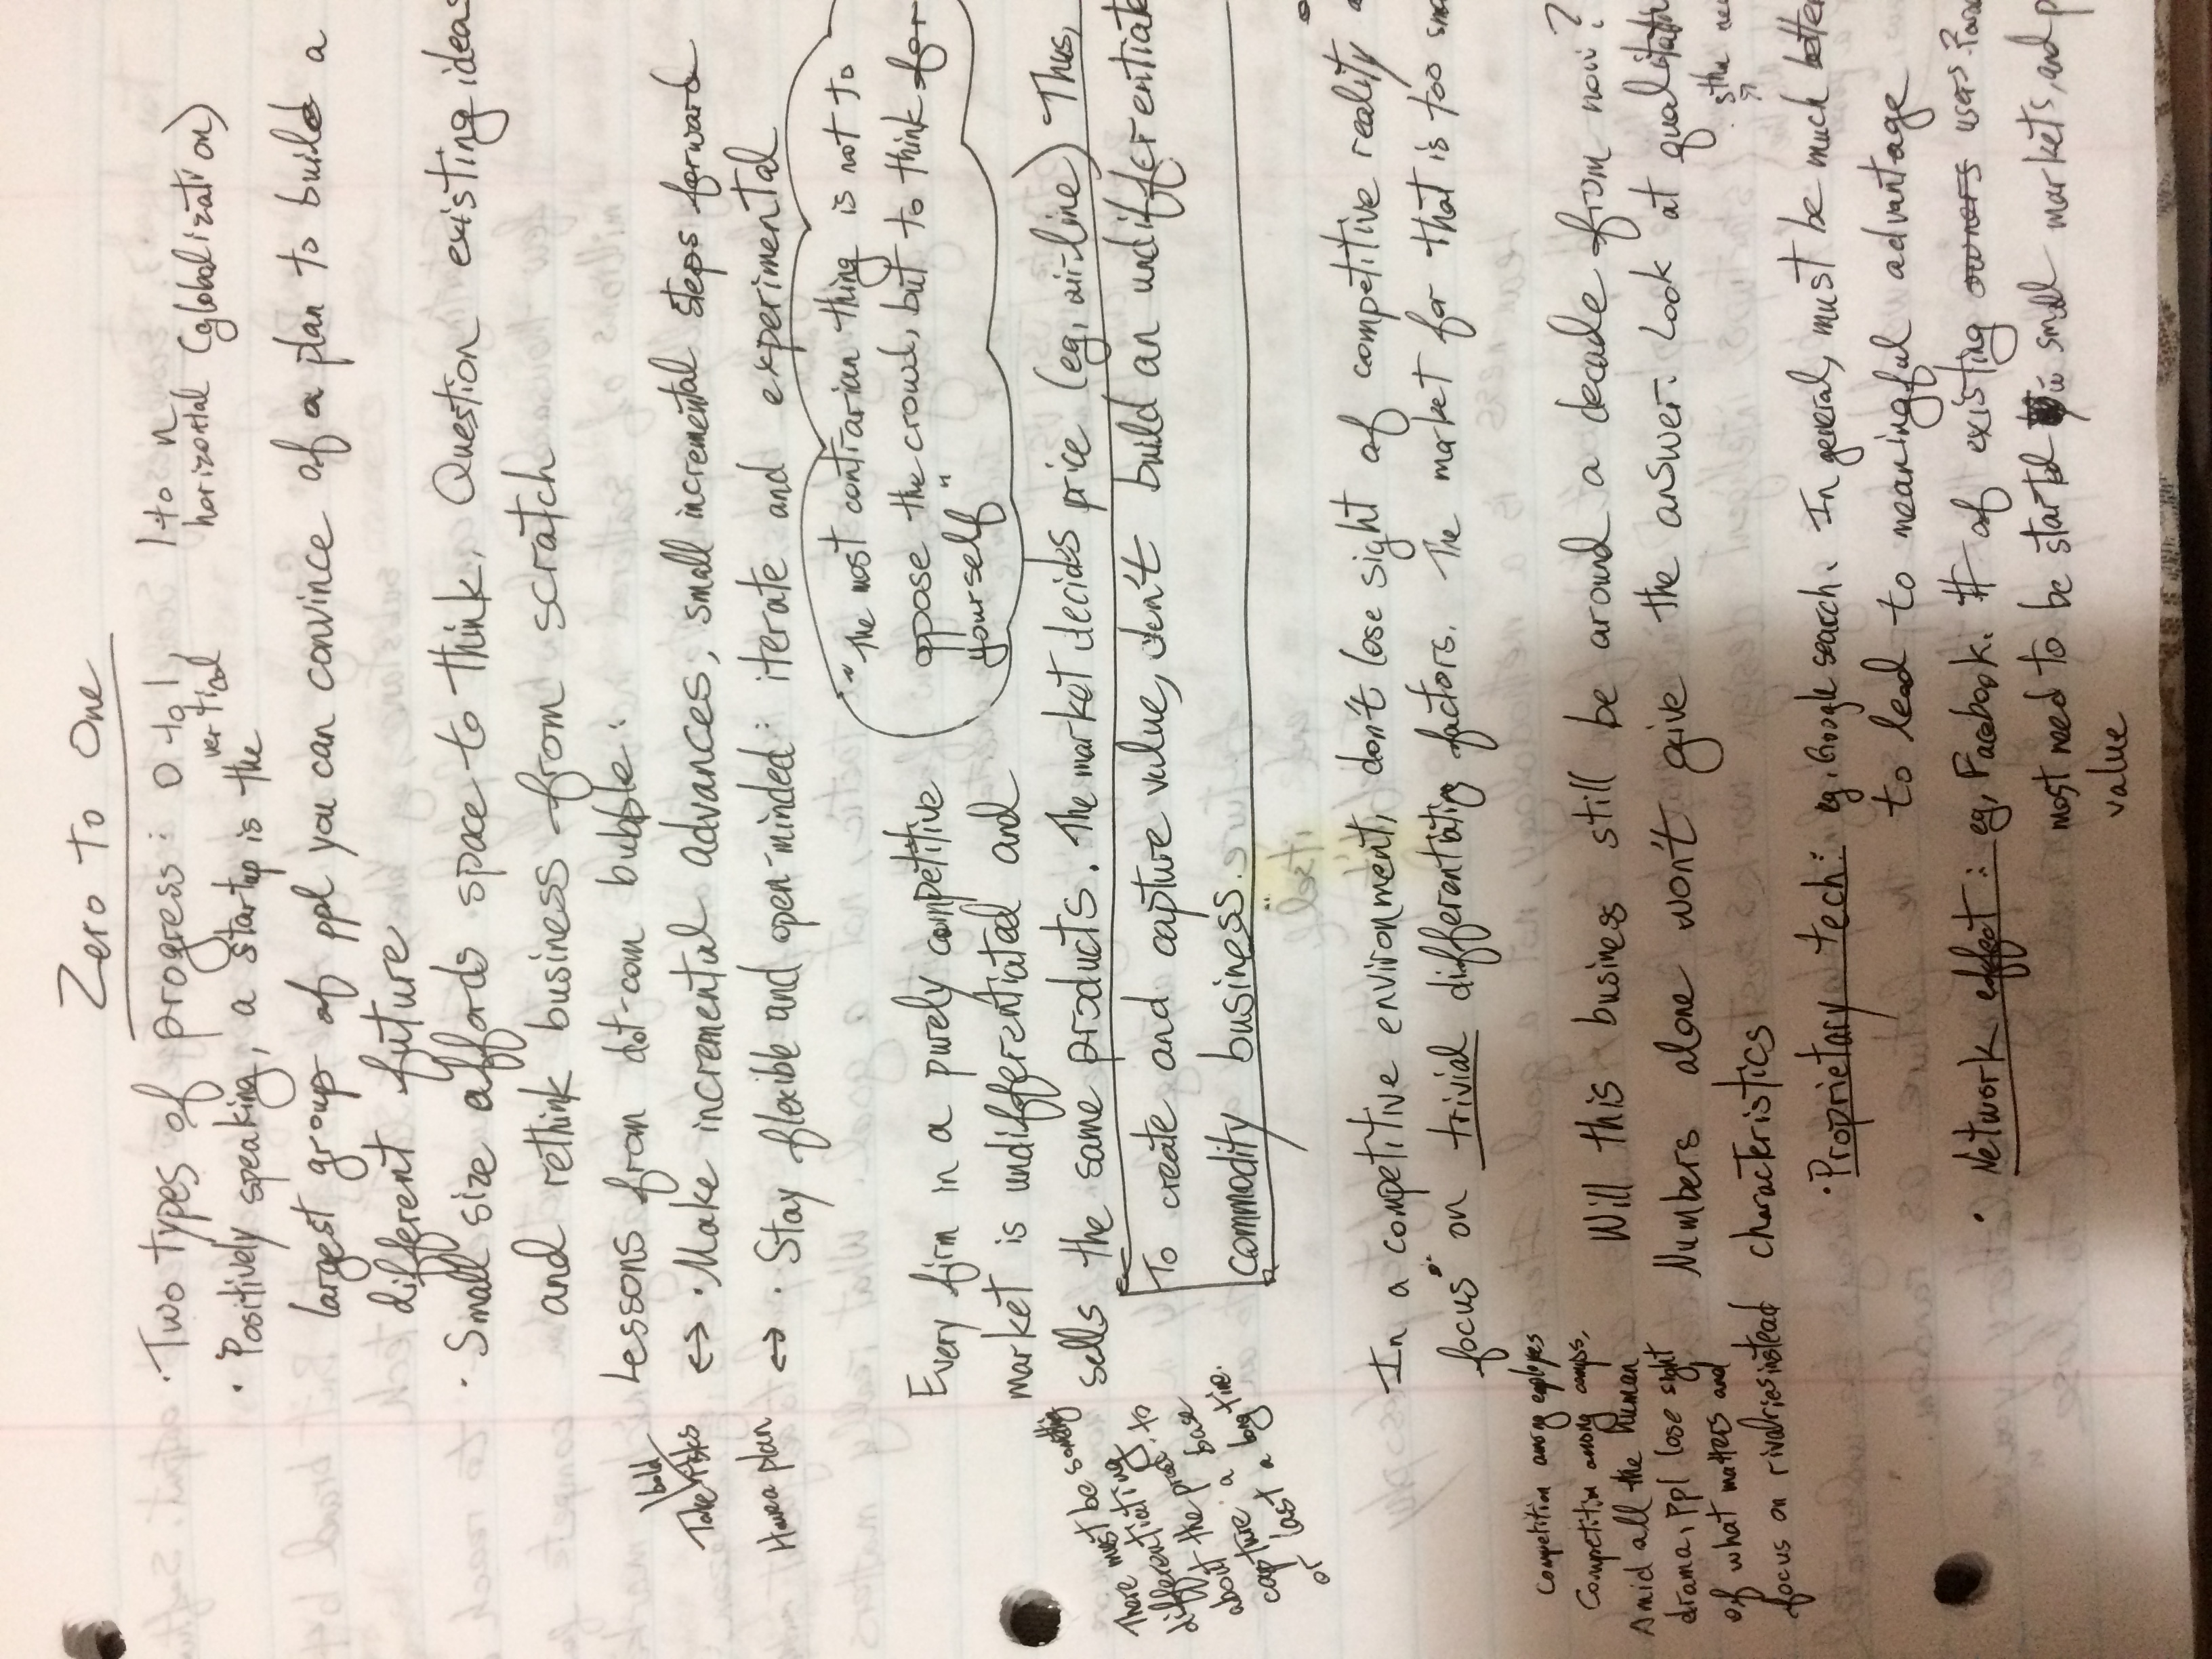 Zero To One
· Two types of progress: 0 to 1, 1 to n
vertical horizontal (globalization)
· Positively speaking, a startup is the
largest group of ppl you can convince of a plan to build a
different future
· Small size affords space to think. Question existing ideas
and rethink business from scratch
Lessons from dot-com bubble:
bold
Take risks ↔ · Make incremental advances, small incremental steps forward
Have a plan ↔ · Stay flexible and open-minded: iterate and experimental
"The most contrarian thing is not to
oppose the crowd, but to think for
yourself"
Every firm in a purely competitive
market is undifferentiated and
sells the same products. The market decides price (eg, air-line) Thus,
To create and capture value, don't build an undifferentiate
commodity business.
There must be something
differentiating
about the prod. to
capture a base
or last a long time.
In a competitive environment, don't lose sight of competitive reality
focus on trivial differentiating factors. The market for that is too
Competition among employes
Competition among comps,
Amid all the human
drama, ppl lose sight
of what matters and
focus on rivalries instead
Will this business still be around a decade from now?
Numbers alone won't give the answer. Look at qualitati
characteristics
sth
· Proprietary tech: eg. Google search. In general, must be much better
to lead to meaningful advantage
· Network effect: eg, Facebook. # of existing owners users
most need to be started in small markets, and p
value